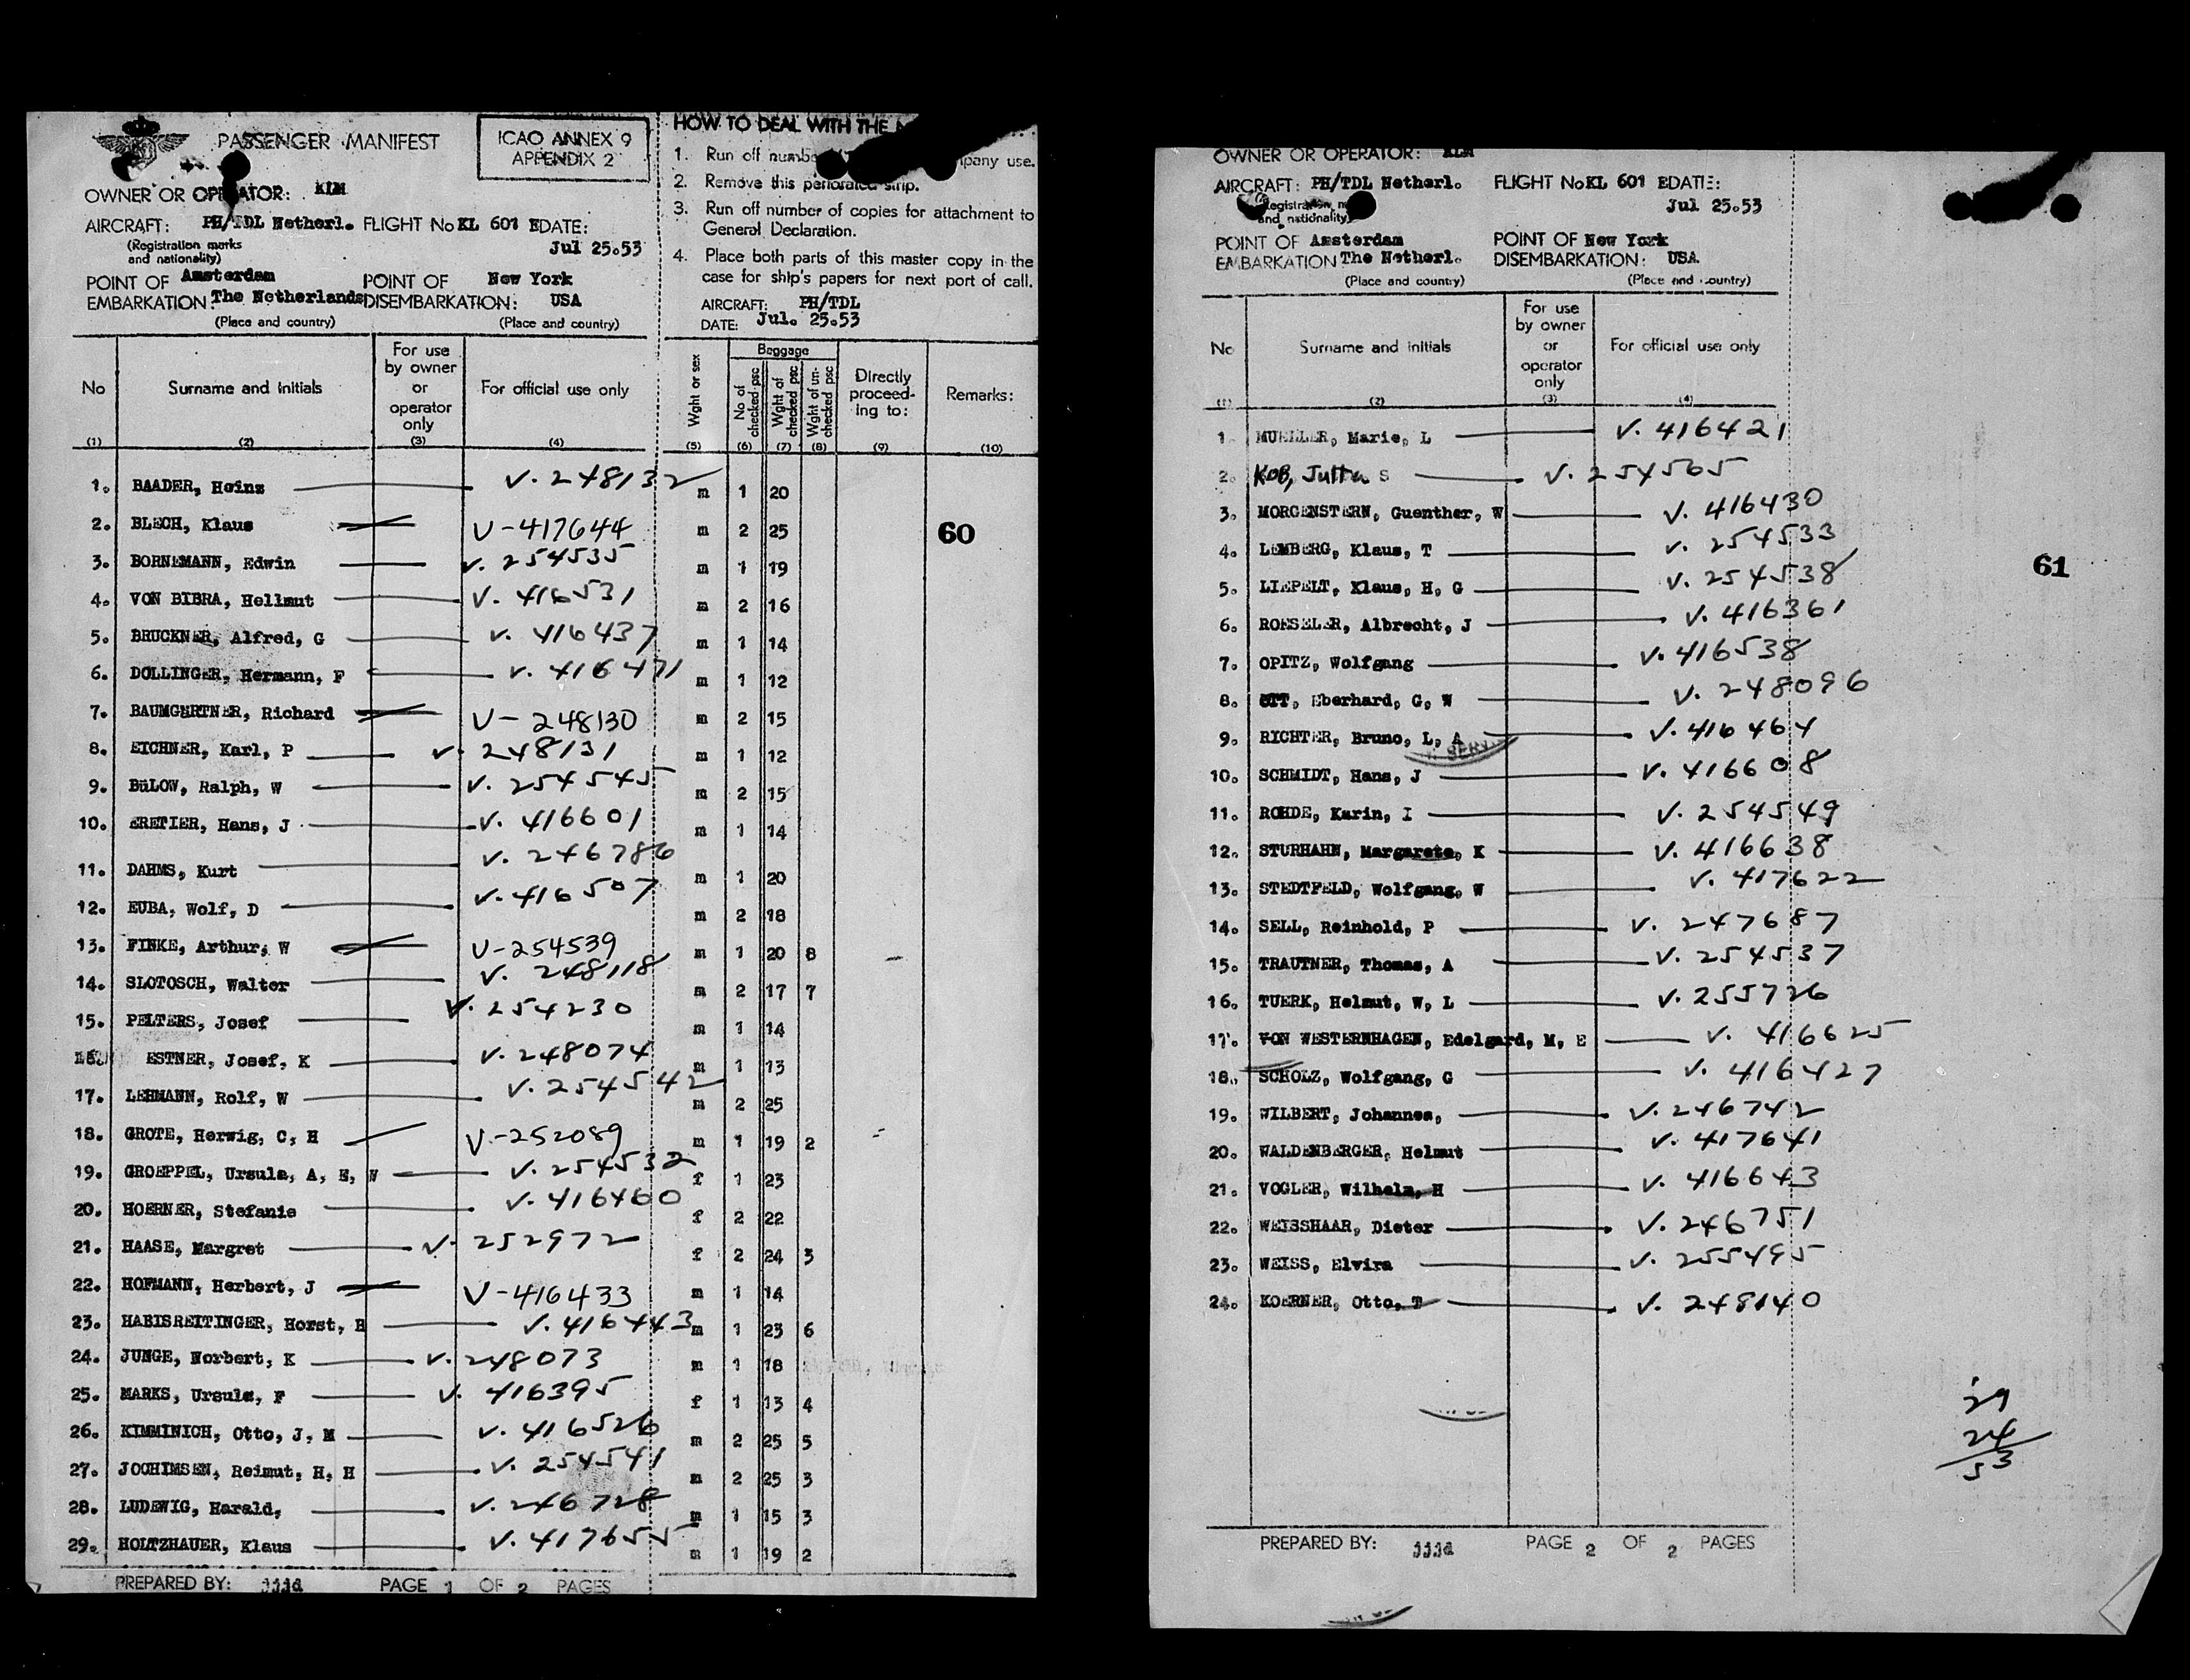 PASSENGER MANIFEST
ICAO ANNEX 9
APPENDIX 2
OWNER OR OPERATOR: KLM
AIRCRAFT: PH/TDL Netherl. FLIGHT No KL 601 E DATE:
(Registration marks
and nationality)
Jul 25.53
POINT OF Amsterdam POINT OF New York
EMBARKATION The Netherlands DISEMBARKATION: USA
(Place and country) (Place and country)
No Surname and initials For use by owner or operator only For official use only
(1) (2) (3) (4)
1. BAADER, Heinz V. 248132
2. BLECH, Klaus V-417644
3. BORNEMANN, Edwin V. 254535
4. VON BIBRA, Hellmut V. 416531
5. BRUCKNER, Alfred, G V. 416437
6. DOLLINGER, Hermann, F V. 416471
7. BAUMGERTNER, Richard V-248130
8. EICHNER, Karl, P V. 248131
9. BüLOW, Ralph, W V. 254545
10. ERETIER, Hans, J V. 416601
11. DAHMS, Kurt V. 246786
12. EUBA, Wolf, D V. 416507
13. FINKE, Arthur, W V-254539
14. SLOTOSCH, Walter V. 248118
15. PELTERS, Josef V. 254230
16. ESTNER, Josef, K V. 248074
17. LEHMANN, Rolf, W V. 254542
18. GROTE, Herwig, C, H V-252089
19. GROEPPEL, Ursula, A, E, W V. 254532
20. HOERNER, Stefanie V. 416460
21. HAASE, Margret V. 252972
22. HOFMANN, Herbert, J V-416433
23. HABISREITINGER, Horst, B V. 416443
24. JUNGE, Norbert, K V. 248073
25. MARKS, Ursula, F V. 416395
26. KIMMINICH, Otto, J, M V. 416526
27. JOCHIMSEN, Reimut, H, H V. 254541
28. LUDEWIG, Harald, V. 246728
29. HOLTZHAUER, Klaus V. 417655
PREPARED BY: jjjd PAGE 1 OF 2 PAGES
HOW TO DEAL WITH THE
1. Run off company use.
2. Remove this perforated strip.
3. Run off number of copies for attachment to
General Declaration.
4. Place both parts of this master copy in the
case for ship's papers for next port of call.
AIRCRAFT: PH/TDL
DATE: Jul. 25.53
Wght or sex Baggage Directly proceed-ing to: Remarks:
No of checked psc Wght of checked psc Wght of un-checked psc
(5) (6) (7) (8) (9) (10)
m 1 20
m 2 25
60
m 1 19
m 2 16
m 1 14
m 1 12
m 2 15
m 1 12
m 2 15
m 1 14
m 1 20
m 2 18
m 1 20 8
m 2 17 7
m 1 14
m 1 13
m 2 25
m 1 19 2
f 1 23
f 2 22
f 2 24 3
m 1 14
m 1 23 6
m 1 18
f 1 13 4
m 2 25 5
m 2 25 3
m 1 15 3
m 1 19 2
OWNER OR OPERATOR: KLM
AIRCRAFT: PH/TDL Netherl. FLIGHT No KL 601 E DATE:
(Registration marks
and nationality)
Jul 25.53
POINT OF Amsterdam POINT OF New York
EMBARKATION The Netherl. DISEMBARKATION: USA
(Place and country) (Place and country)
No Surname and initials For use by owner or operator only For official use only
(1) (2) (3) (4)
1. MUELLER, Marie, L V. 416421
2. KOB, Jutta S V. 254565
3. MORGENSTERN, Guenther, W V. 416430
4. LEMBERG, Klaus, T V. 254533
5. LIEPELT, Klaus, H, G V. 254538
61
6. ROESELER, Albrecht, J V. 416361
7. OPITZ, Wolfgang V. 416538
8. OTT, Eberhard, G, W V. 248096
9. RICHTER, Bruno, L, A V. 416464
10. SCHMIDT, Hans, J V. 416608
11. ROHDE, Karin, I V. 254549
12. STURHAHN, Margarete, K V. 416638
13. STEDTFELD, Wolfgang, W V. 417622
14. SELL, Reinhold, P V. 247687
15. TRAUTNER, Thomas, A V. 254537
16. TUERK, Helmut, W, L V. 255726
17. VON WESTERNHAGEN, Edelgard, M, E V. 416625
18. SCHOLZ, Wolfgang, G V. 416427
19. WILBERT, Johannes, V. 246742
20. WALDENBERGER, Helmut V. 417641
21. VOGLER, Wilhelm, H V. 416643
22. WEISSHAAR, Dieter V. 246751
23. WEISS, Elvira V. 255495
24. KOERNER, Otto, T V. 248140
29
24
53
PREPARED BY: jjjd PAGE 2 OF 2 PAGES